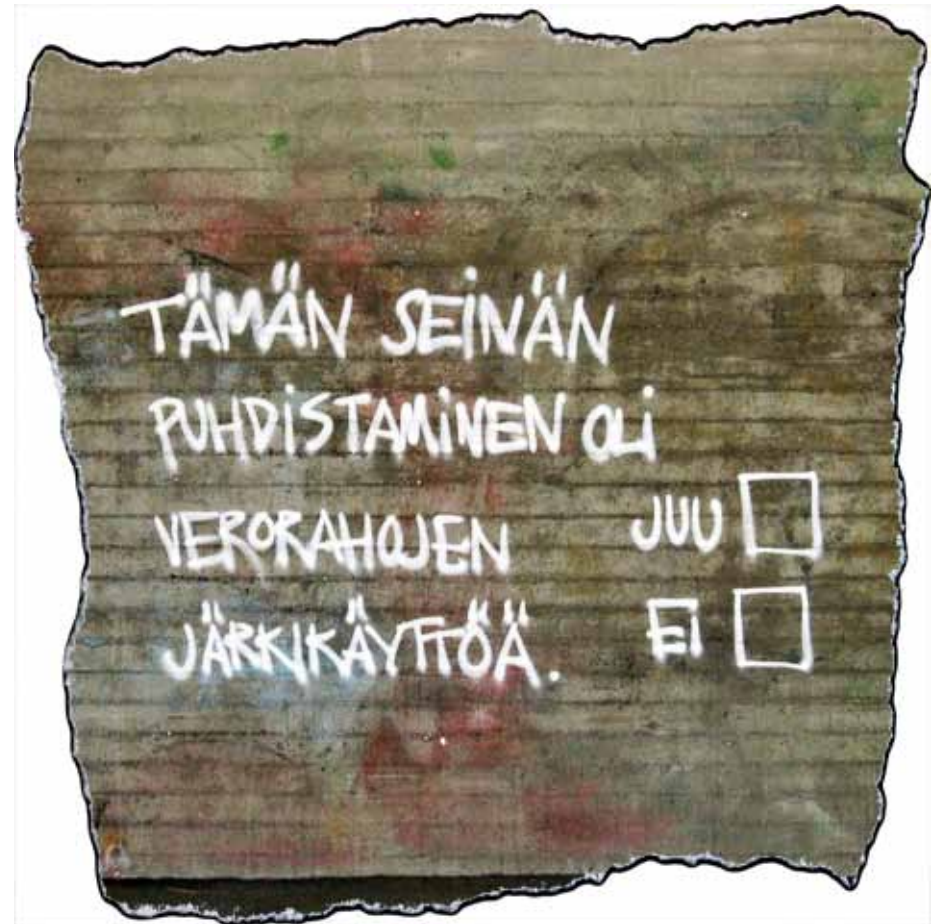 TÄMÄN SEINÄN
PUHDISTAMINEN OLI
VERORAHOJEN JUU
JÄRKIKÄYTTÖÄ. EI